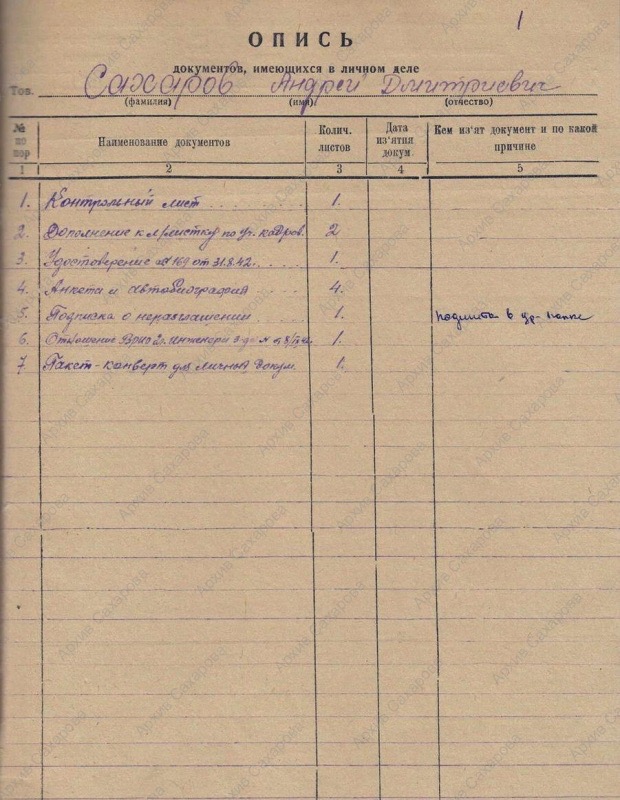 1
ОПИСЬ
документов, имеющихся в личном деле
Тов. Сахаров Андрей Дмитриевич
(фамилия) (имя) (отчество)
№ по пор Наименование документов Колич. листов Дата из'ятия докум. Кем из'ят документ и по какой причине
1 2 3 4 5
1. Контрольный лист 1.
2. Дополнение к л/листку по уч. кадров. 2
3. Удостоверение № 169 от 31.8.42. 1.
4. Анкета и автобиография 4.
5. Подписка о неразглашении 1. подшита в др. папке
6. Отношение ВРИО Гл. инженера з-да № 1.
7. Пакет-конверт для личных докум. 1.
Архив Сахарова